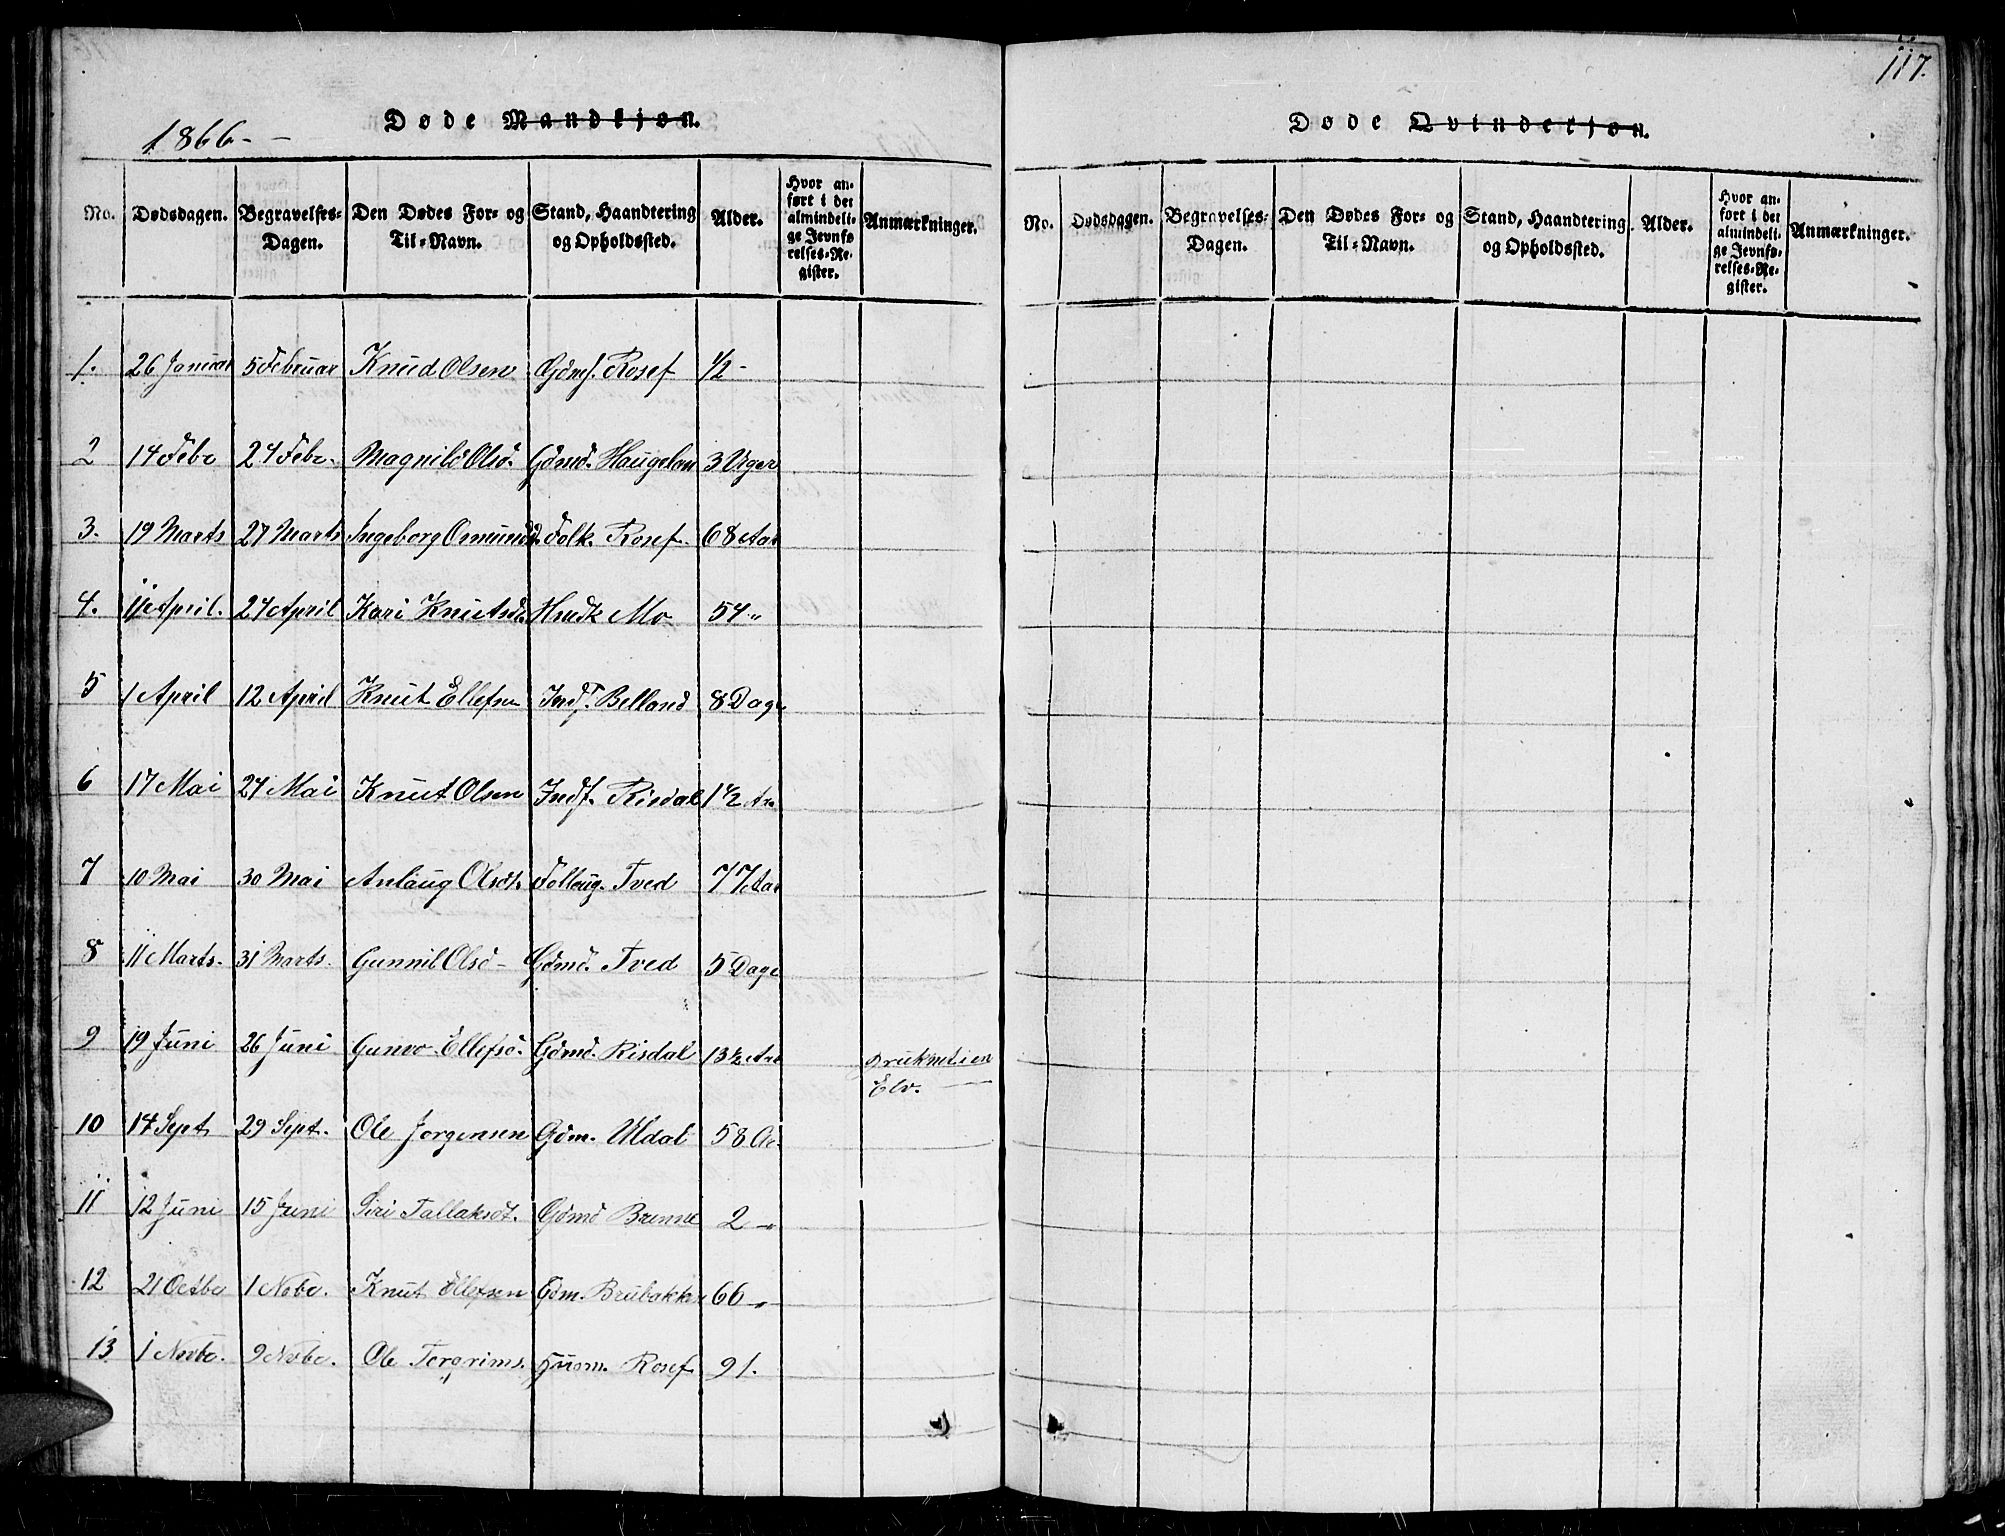 117.
1866 -
Døde Mandkjøn.
No. Dødsdagen. Begravelses-Dagen. Den Dødes For- og Til-Navn. Stand, Haandtering og Opholdssted. Alder. Hvor anført i det almindelige Jevnførelses-Register. Anmærkninger.
1. 26 Januar 5 Februar Knud Olsen Gdms. Rosef 1/2 -
2 14 Febr 24 Febr. Magnild Olsd. Gdmd. Haugelan 3 Uger
3. 19 Marts 27 Marts Ingeborg Osmundsd. Folk. Rosef. 68 Aar
4. 11 April. 24 April Kari Knutsd. Hmdk Mo 54 "
5 1 April 12 April Knut Ellefsen Inds. Belland 8 Dage
6 17 Mai 24 Mai Knut Olsen Inds. Risdal 1 1/2 Aa
7 10 Mai 30 Mai Anlaug Olsdt. Tved 77 Aar
8 11 Marts. 31 Marts. Gunnil Olsd - Gdmd. Tved 5 Dage
9 19 Juni 26 Juni Gunvo. Ellefsd. Gdmd. Risdal 13 1/2 Aar Druknet i en
Elv.
10 14 Sept 29 Sept. Ole Jorgensen Gdm. Uldal 58 Aa.
11 12 Juni 15 Juni Siri Tallaksdt. Gdmd Brenne 2 "
12 21 Octbr 1 Nobr. Knut Ellefsen Gdm. Brubakken 66 "
13 1 Novbr. 9 Novbr. Ole Tergrims. Husm. Rosef 91.
Døde Qvindekjøn.
No. Dødsdagen. Begravelses-Dagen. Den Dødes For- og Til-Navn. Stand, Haandtering og Opholdssted. Alder. Hvor anført i det almindelige Jevnførelses-Register. Anmærkninger.